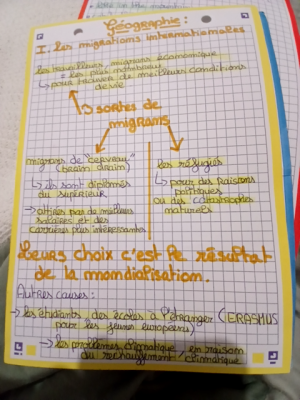 Géographie :
I. Les migrations internationales
les travailleurs, migrans économique
= les plus nombreux
↳ pour trouver de meilleurs conditions
de vie
3 sortes de
migrans
migrans de "cerveau"
(brain drain)
↳ ils sont diplômés
du supérieur
→ attirés par de meilleurs
salaires et des
carrières plus intéressantes
les réfugiés
↳ pour des raisons
politiques
ou des catastrophes
naturelles
Leurs choix c'est le résultat
de la mondialisation.
Autres causes :
→ les étudiants, des écoles à l'étranger (ERASMUS
pour les jeunes européens)
→ les problèmes climatique, en raison
du rechauffement climatique